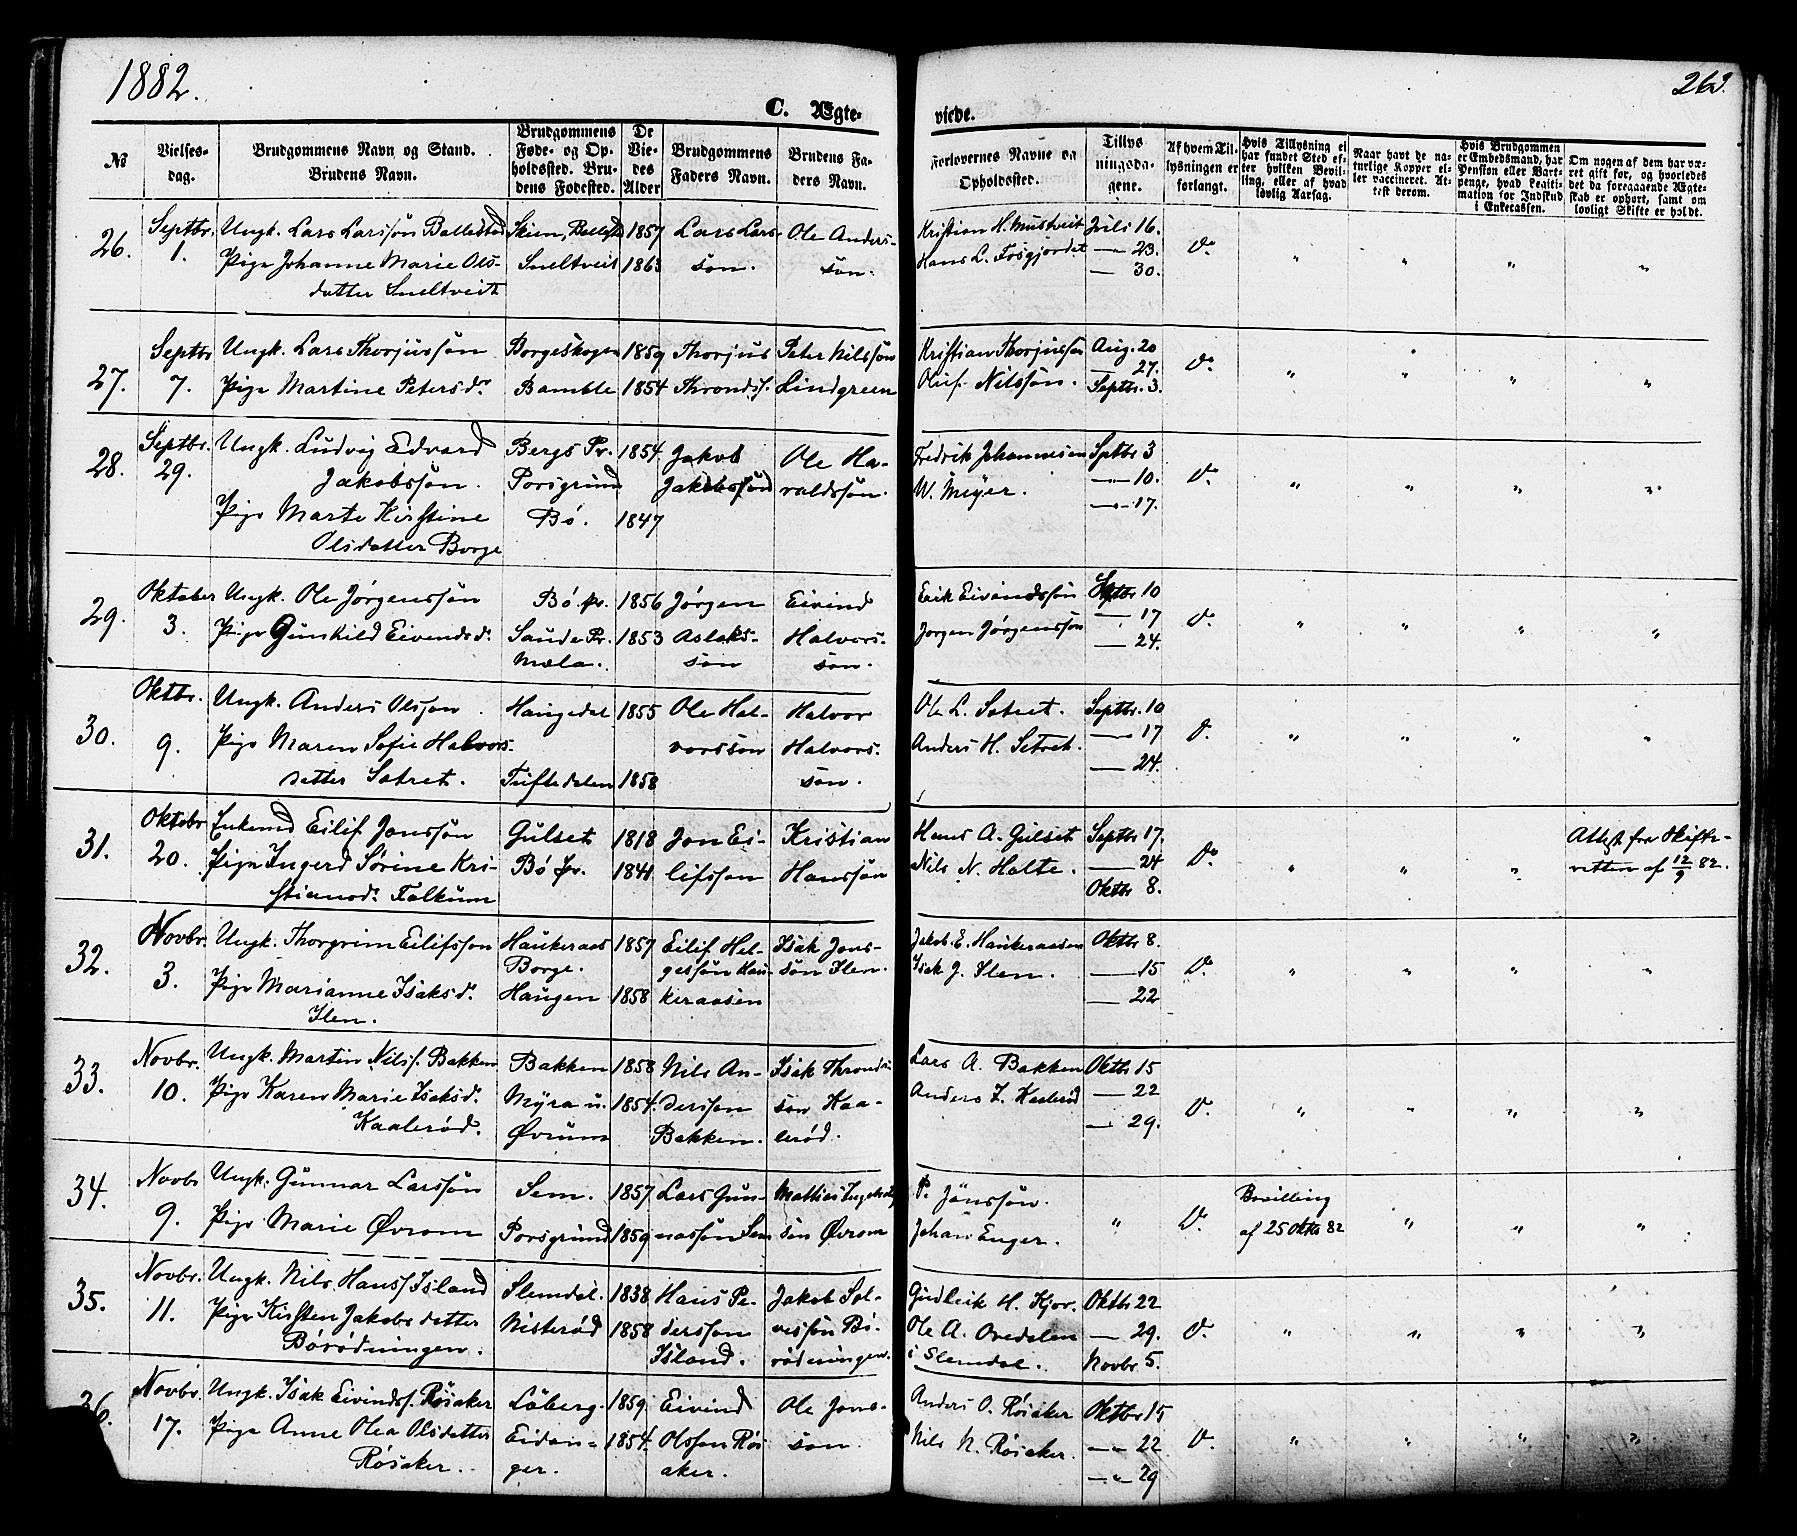 1882.
263.
C. Ægte-
viede.
№
Vielses-
dag.
Brudgommens Navn og Stand.
Brudens Navn.
Brudgommens
Føde- og Op-
holdssted. Bru-
dens Fødested.
De
Vie-
des
Alder
Brudgommens
Faders Navn.
Brudens Fa-
ders Navn.
Forlovernes Navne og
Opholdssted.
Tillys
ningsda-
gene.
Af hvem Til-
lysningen er
forlangt.
Hvis Tillysning ei
har fundet Sted ef-
ter hvilken Bevil-
ling, eller af hvad
lovlig Aarsag.
Naar havt de na-
turlige Kopper el-
ler vaccineret. At-
test derom.
Hvis Brudgommen
er Embedsmand, har
Pension eller Vart-
penge, hvad Legiti-
mation for Indskud
i Enkecassen.
Om nogen af dem har væ-
ret gift før, og hvorledes
det da foregaaende Ægte-
skab er ophørt, samt om
lovligt Skifte er holdt.
26.
Septbr.
1.
Ungk. Lars Larssøn Ballestad
Pige Johanne Marie Ols-
datter Sneltveit
Skien, Ballestad
Sneltveit
1857
1863
Lars Lars-
søn.
Ole Anders-
søn.
Kristian H. Mustveit
Hans L. Fosgjordet
Juli 16.
— 23.
— 30.
Do
27.
Septbr
7.
Ungk. Lars Thorjussøn
Pige Martine Petersd.
Borgeskogen
Bamble
1859
1854
Thorjus
Throndsf.
Peter Nilssøn
Lindgreen
Kristian Thorjussøn
Oluf Nilssøn.
Aug. 20
— 27.
Septbr. 3.
Do
28.
Septbr.
29.
Ungk. Ludvig Edvard
Jakobssøn.
Pige Marte Kirstine
Olsdatter Borge
Bergs Pr.
Porsgrund
Bø.
1854.
1847
Jakob
Jakobssøn
Ole Ha-
valdssøn.
Fredrik Johannesen
W. Meyer.
Sptbr 3
—"— 10.
—"— 17.
Do
29.
Oktober
3.
Ungk. Ole Jørgenssøn
Pige Gunhild Eivendsd.
Bø. pr.
Saude Pr.
Mæla.
1856
1853
Jørgen
Aslaks-
søn
Eivind
Halvors-
søn.
Erik Eivindssøn
Jørgen Jørgenssøn
Septbr 10
— 17
— 24.
Do
30.
Oktbr.
9.
Ungk. Anders Olssøn.
Pige Maren Sofie Halvors-
datter Sætret.
Haugedal
Tufledalen
1855
1858
Ole Hal-
vorssøn
Halvor
Halvors-
søn.
Ole L. Sætret.
Anders H. Setret.
Septbr. 10
— 17
— 24.
Do
31.
Oktobr
20.
Enkemd Eilif Jonssøn
Pige Ingerd Sørine Kri-
stiansd. Falkum
Gulset
Bø pr.
1818
1841
Jon Ei-
lifssøn
Kristian
Hanssøn
Hans A. Gulset
Nils N. Holte.
Septbr 17.
— 24
Oktbr 8.
Do
Attest fra Skifte-
retten af 12/9 82.
32.
Novbr.
3.
Ungk. Thorgrim Eilifssøn
Pige Marianne Isaksd.
Ilen.
Haukeraas
Borge.
Haugen
1857
1858
Eilif Hel-
gessøn Hau-
keraasen
Isak Jons-
søn Ilen.
Jakob E. Haukeraasen
Isak J. Ilen.
Oktbr 8.
— 15
— 22
Do
33.
Novbr.
10.
Ungk. Martin Nilsf. Bakken
Pige Karen Marie Isaksd.
Kaalerød.
Bakken
Myra u.
Øvrum
1858
1854.
Nils An-
derssøn
Bakken.
Isak Thronds-
søn Kaa-
lerød.
Lars A. Bakken
Anders I. Kaalerød
Oktbr 15
— 22
— 29.
Do
34.
Novbr
9.
Ungk. Gunnar Larssøn
Pige Marie Øvrom
Sem.
Porsgrund
1857.
1859
Lars Gun-
narssøn Sem
Mathias Ingebrets-
søn Øvrom
P. Jönssøn.
Johan Enger.
"
Do
Bevilling
af 25 Oktbr 82
35.
Novbr.
11.
Ungk. Nils Hansf. Island
Pige Kirsten Jakobsdatter
Börødningen.
Slemdal.
Nisterød
1838.
1858
Hans Pe-
derssøn
Island.
Jakob Sol-
vessøn Bö-
rødningen.
Gudleik H. Kjør.
Ole A. Ovedalen
i Slemdal.
Oktbr 22
— 29.
Novbr 5.
Do
36.
Novbr.
17.
Ungk. Isak Eivindsf. Røsaker
Pige Anne Olea Olsdatter
Røsaker.
Löberg-
Eidan-
ger.
1859.
1854.
Eivind
Olssøn Røs-
aker.
Ole Jons-
søn
Anders O. Røsaker
Nils N. Røsaker.
Oktbr 15
—"— 22
—"— 29
Do